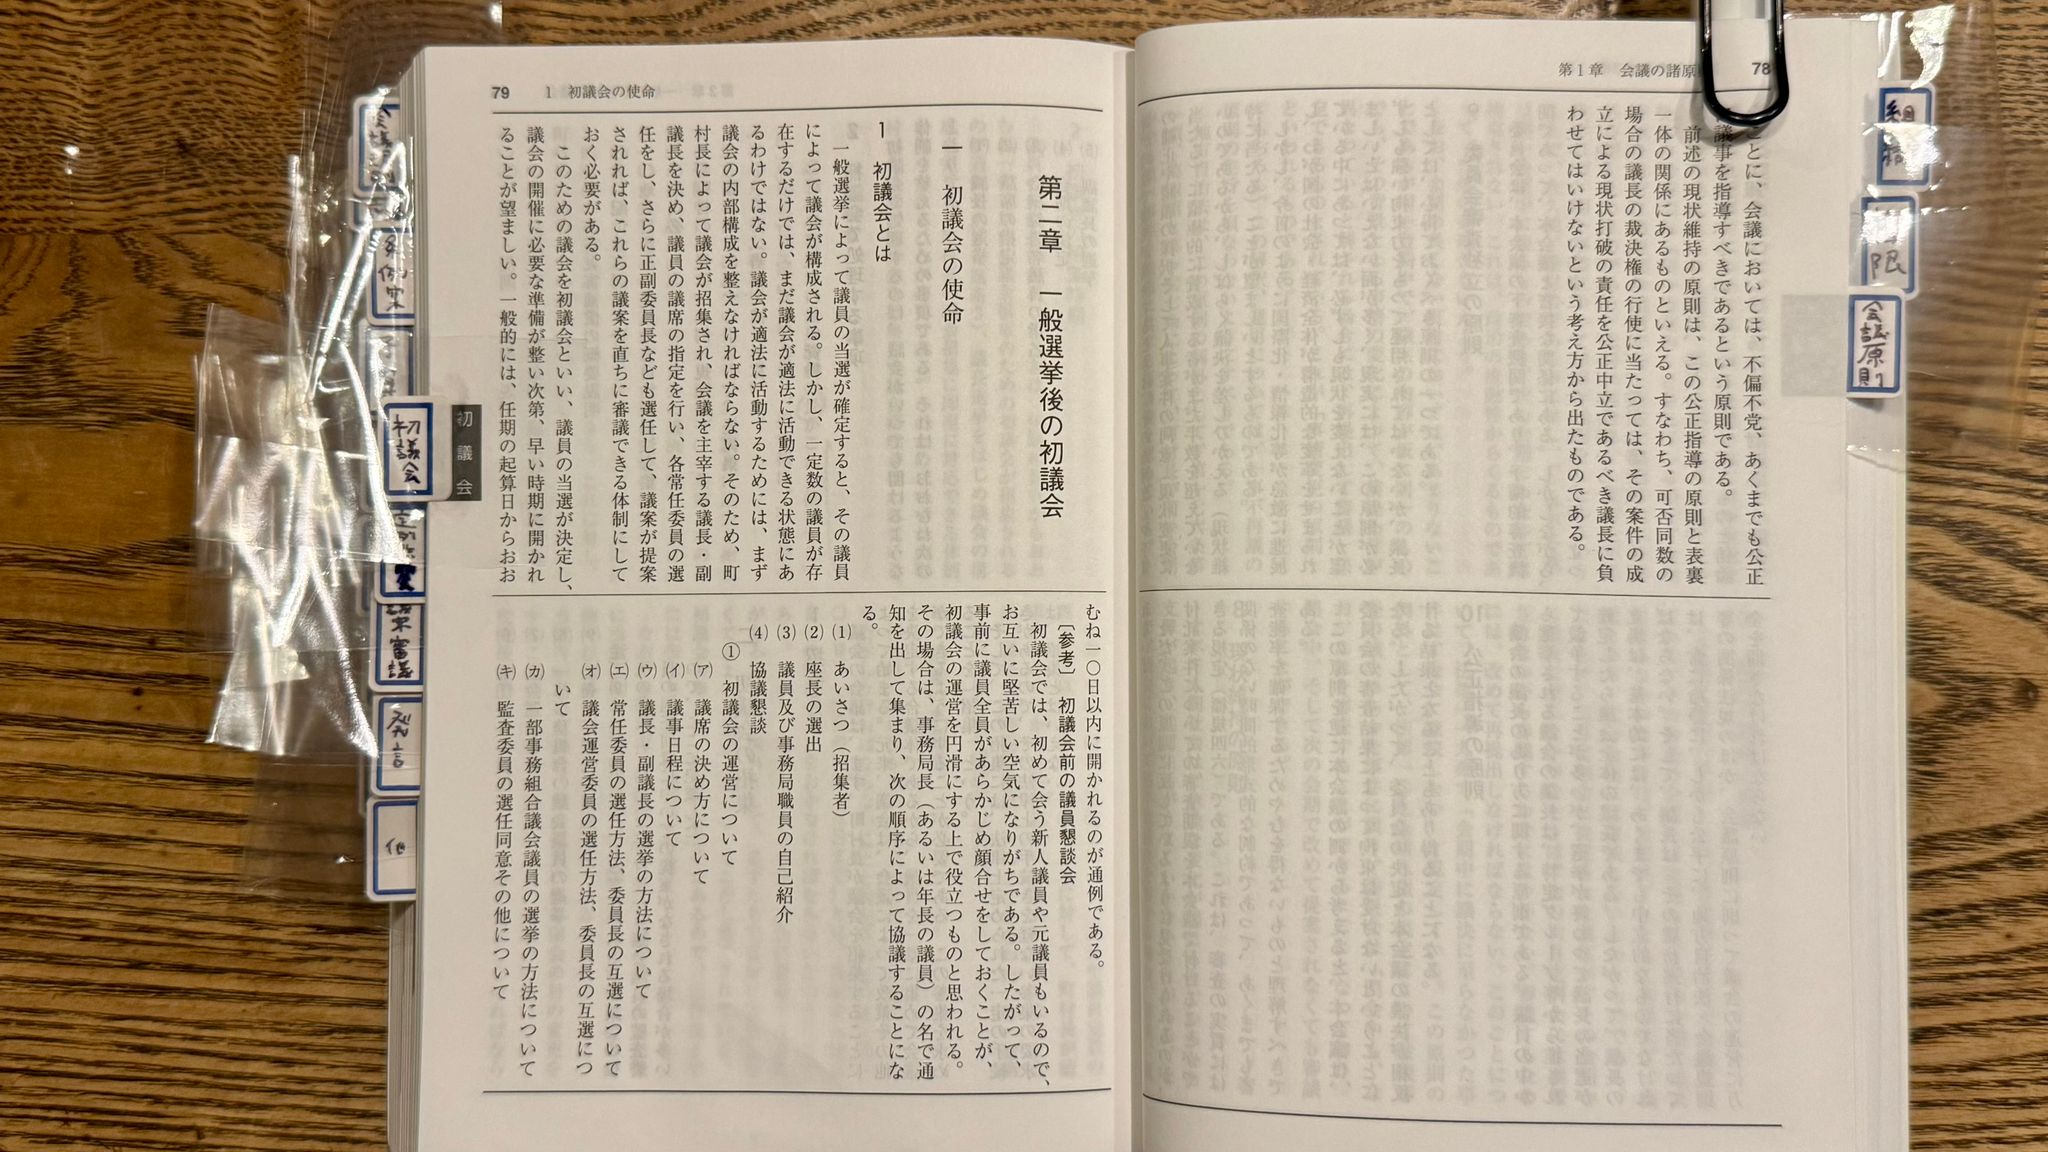 第1章 会議の諸原
78
ことに、会議においては、不偏不党、あくまでも公正
議事を指導すべきであるという原則である。
前述の現状維持の原則は、この公正指導の原則と表裏
一体の関係にあるものといえる。すなわち、可否同数の
場合の議長の裁決権の行使に当たっては、その案件の成
立による現状打破の責任を公正中立であるべき議長に負
わせてはいけないという考え方から出たものである。
79
1 初議会の使命
第二章 一般選挙後の初議会
一 初議会の使命
1 初議会とは
一般選挙によって議員の当選が確定すると、その議員
によって議会が構成される。しかし、一定数の議員が存
在するだけでは、まだ議会が適法に活動できる状態にあ
るわけではない。議会が適法に活動するためには、まず
議会の内部構成を整えなければならない。そのため、町
村長によって議会が招集され、会議を主宰する議長・副
議長を決め、議員の議席の指定を行い、各常任委員の選
任をし、さらに正副委員長なども選任して、議案が提案
されれば、これらの議案を直ちに審議できる体制にして
おく必要がある。
このための議会を初議会といい、議員の当選が決定し、
議会の開催に必要な準備が整い次第、早い時期に開かれ
ることが望ましい。一般的には、任期の起算日からおお
むね一〇日以内に開かれるのが通例である。
〔参考〕 初議会前の議員懇談会
初議会では、初めて会う新人議員や元議員もいるので、
お互いに堅苦しい空気になりがちである。したがって、
事前に議員全員があらかじめ顔合せをしておくことが、
初議会の運営を円滑にする上で役立つものと思われる。
その場合は、事務局長（あるいは年長の議員）の名で通
知を出して集まり、次の順序によって協議することにな
る。
(1) あいさつ（招集者）
(2) 座長の選出
(3) 議員及び事務局職員の自己紹介
(4) 協議懇談
① 初議会の運営について
(ア) 議席の決め方について
(イ) 議事日程について
(ウ) 議長・副議長の選挙の方法について
(エ) 常任委員の選任方法、委員長の互選について
(オ) 議会運営委員の選任方法、委員長の互選につ
いて
(カ) 一部事務組合議会議員の選挙の方法について
(キ) 監査委員の選任同意その他について
初議会
初議会
発言
他
組織
権限
会議原則